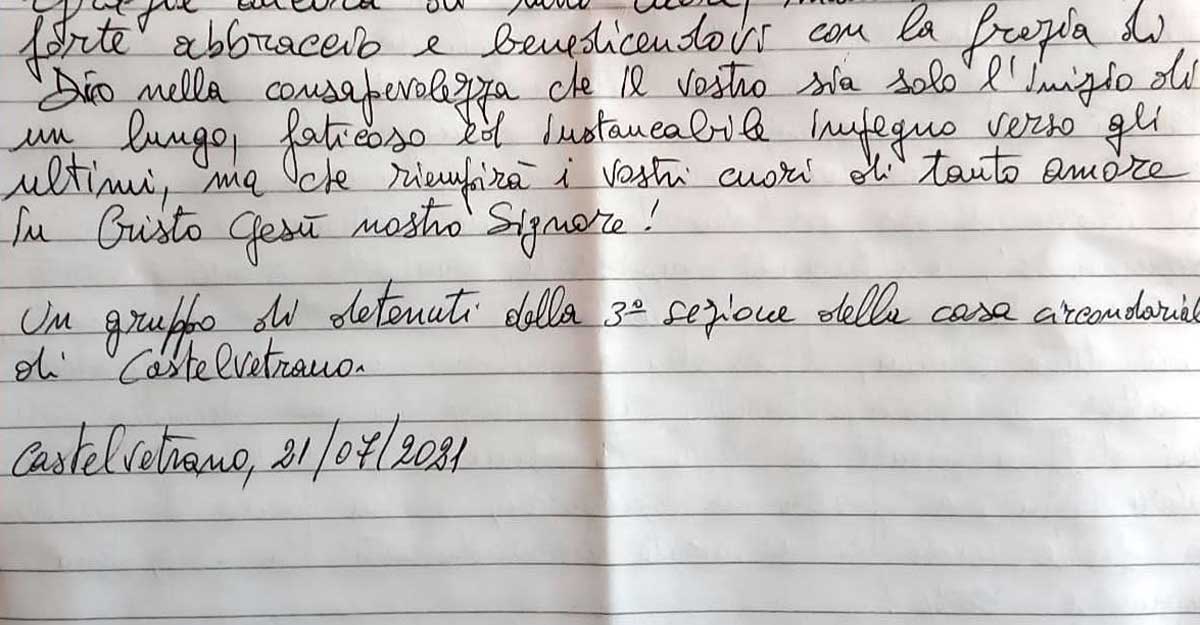 Grazie ancora di tutto cuore,
forte abbraccio e benedicendovi con la grazia di
Dio nella consapevolezza che il vostro sia solo l'inizio di
un lungo, faticoso ed instancabile impegno verso gli
ultimi, ma che riempirà i vostri cuori di tanto amore
in Cristo Gesù nostro Signore!
Un gruppo di detenuti della 3ª sezione della casa circondarial
di Castelvetrano.
Castelvetrano, 21/07/2021